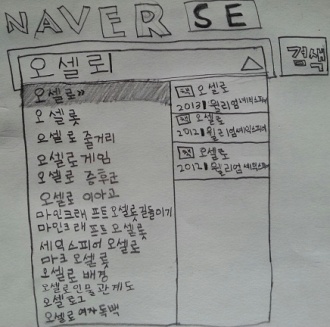 NAVER SE
오셀로 검색
오셀로»
오셀롯
오셀로 줄거리
오셀로게임
오셀로 증후군
오셀로 이아고
마인크래프트 오셀롯길들이기
마인크래프트 오셀롯
셰익스피어 오셀로
마크 오셀롯
오셀로 배경
오셀로인물관계도
오셀로그
오셀로 여자독백
오셀로
2013 | 윌리엄셰익스피어
오셀로
2012 | 윌리엄셰익스피어
오셀로
2012 | 윌리엄셰익스피어